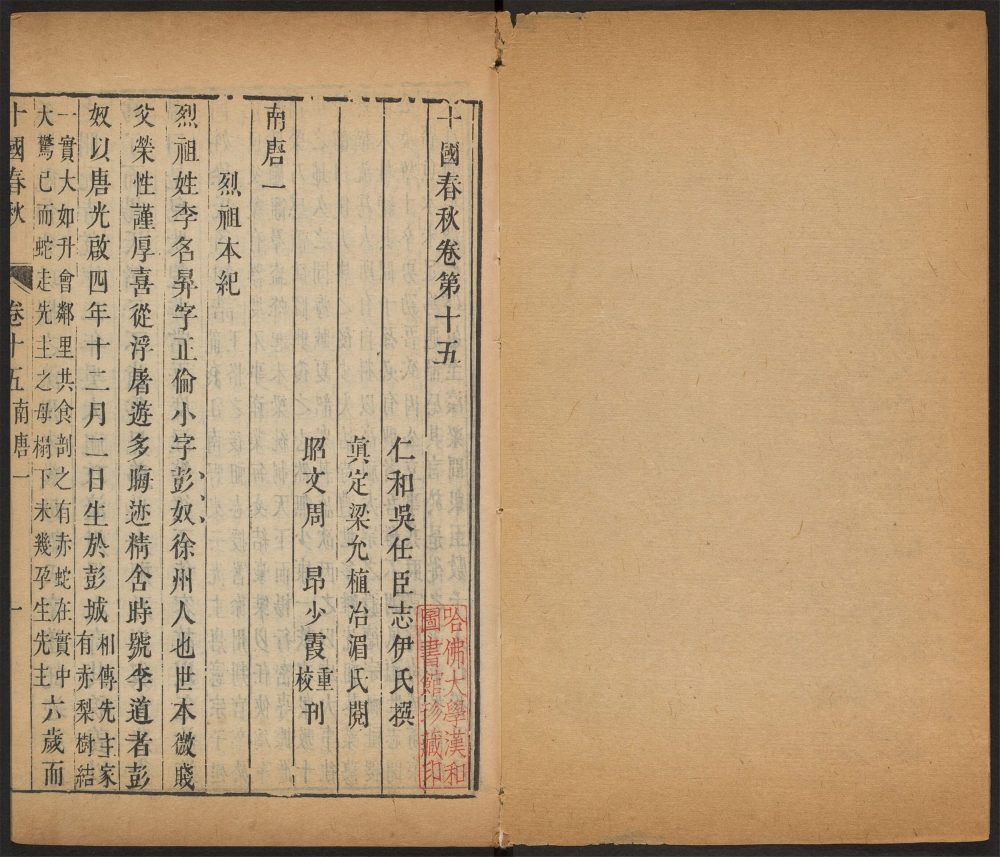 十國春秋卷第十五
仁和吳任臣志伊氏撰
真定梁允植冶湄氏閱
昭文周昂少霞重校刊
南唐一
烈祖本紀
烈祖姓李名昪字正倫小字彭奴徐州人也世本微賤
父榮性謹厚喜從浮屠遊多晦迹精舍時號李道者彭
奴以唐光啟四年十二月二日生於彭城相傳先主家有赤梨樹結
一實大如升會鄰里共食剖之有赤蛇在實中大驚已而蛇走先主之母榻下未幾孕生先主六歲而
十國春秋 卷十五南唐一 一
哈佛大學漢和
圖書館珍藏印